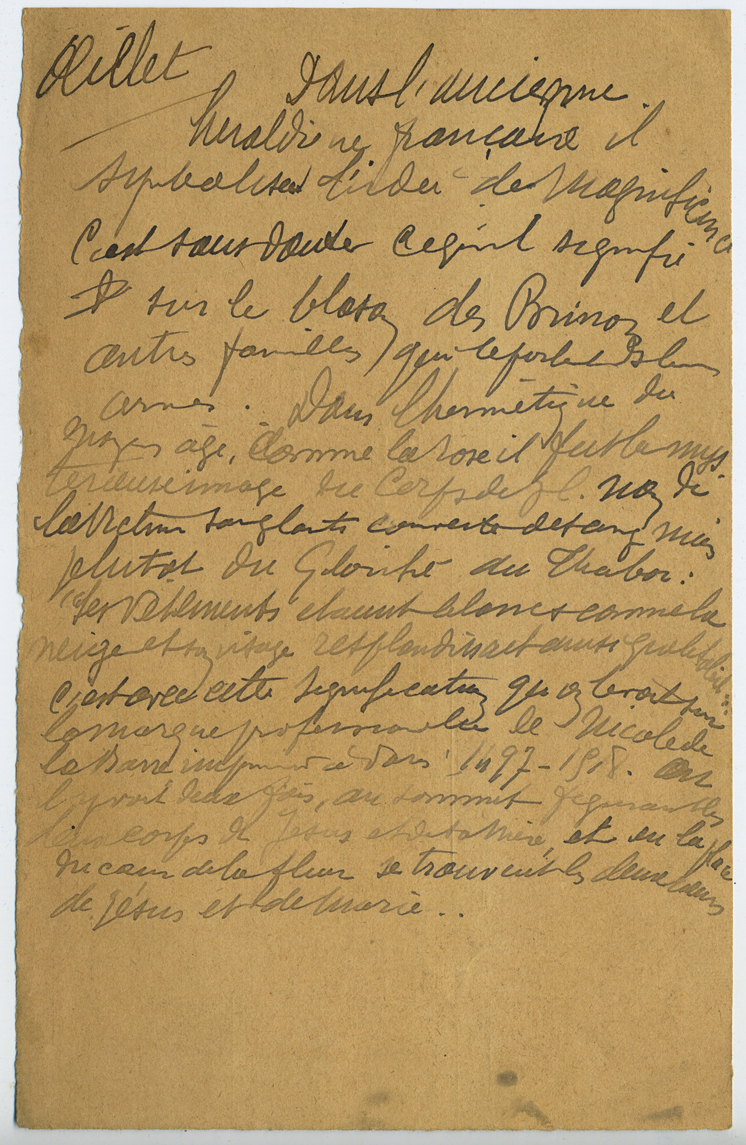 Œillet
Dans l'ancienne
heraldique française il
symbolisait l'idée de magnificence
C'est sans doute ce qu'il signifie
sur le blason des Brinon et
autres familles qui le portent ds leurs
armes. Dans l'hermétique du
moyen âge, comme la rose il fut la mys
terieuse image du Corps de J. C. non de
la Victime sanglante couverte de sang mais
plutot du Glorifié du Thabor :
"Ses vêtements étaient blancs comme la
neige et son visage resplendissait aussi
c'est avec cette signification qu'on le voit sur
la marque professionnelle de Nicole de
la Barre imprimeur à Paris 1497-1518. On
l'y voit deux fois, au sommet figurant les
deux corps de Jésus et de sa Mère, et en la place
du cœur de la fleur se trouvent les deux cœurs
de Jésus et de Marie..